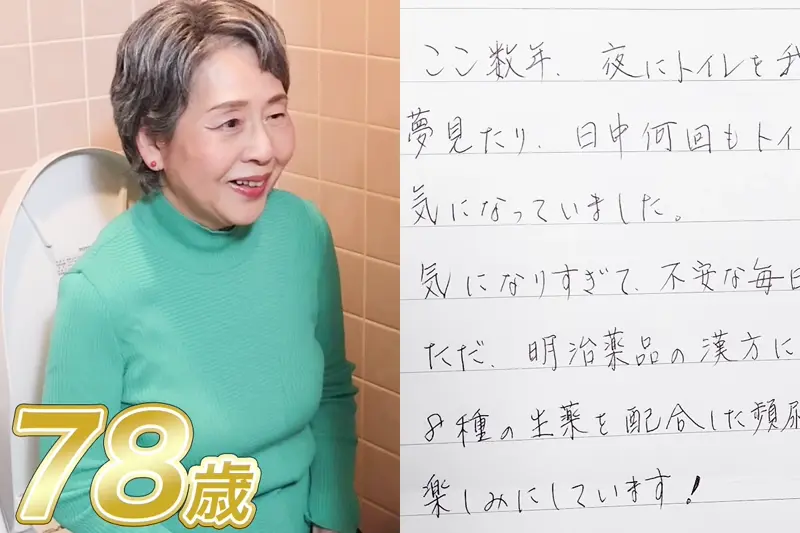 78歳
ここ数年、夜にトイレを我
夢見たり、日中何回もトイ
気になっていました。
気になりすぎて、不安な毎日
ただ、明治薬品の漢方に
8種の生薬を配合した頻尿
楽しみにしています!